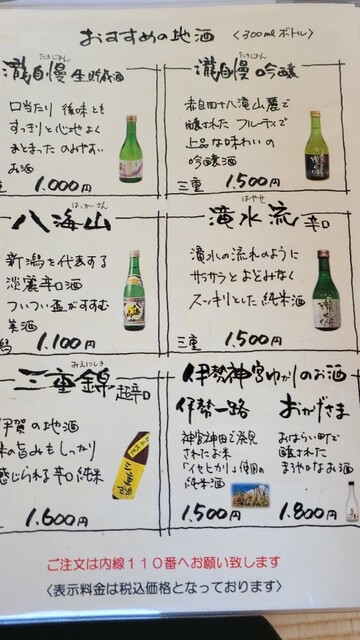 おすすめの地酒 〈300mlボトル〉
たきじまん
瀧自慢 生貯蔵酒
口当たり 後味とも
すっきりと心地よく
まとまった のみやすい
お酒
1.000円
たきじまん
瀧自慢 吟醸
赤目四十八滝山麓で
醸された フルーティで
上品な味わいの
吟醸酒
三重 1.500円
はっかいさん
八海山
新潟を代表する
淡麗辛口酒
ついつい盃がすすむ
美酒
潟 1.100円
はやせ
滝水流 辛口
滝水の流れのように
サラサラとよどみなく
スッキリとした純米酒
三重 1.500円
みえにしき
三重錦 超辛口
伊賀の地酒
米の旨みもしっかり
感じられる辛口純米
1.600円
伊勢神宮ゆかりのお酒
伊勢一路
神宮神田で発見
されたお米
「イセヒカリ」使用の
純米酒
1.500円
おかげさま
おはらい町で
醸された
まろやかなお酒
1.800円
ご注文は内線110番へお願い致します
〈表示料金は税込価格となっております〉